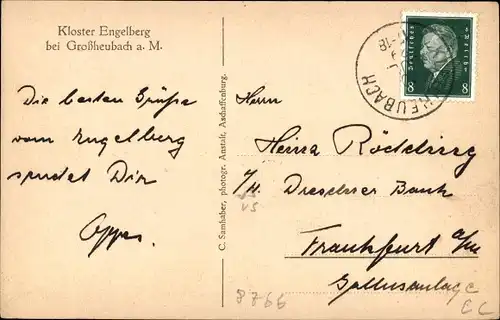 Kloster Engelberg
bei Großheubach a. M.
Die besten Grüße
vom Engelberg
sendet Dir
C. Samhaber, photogr. Anstalt, Aschaffenburg.
Deutsches Reich
8 8
HEUBACH
Herrn
Heinz
Dresdner Bank
Frankfurt a/M
Gallusanlage
8766